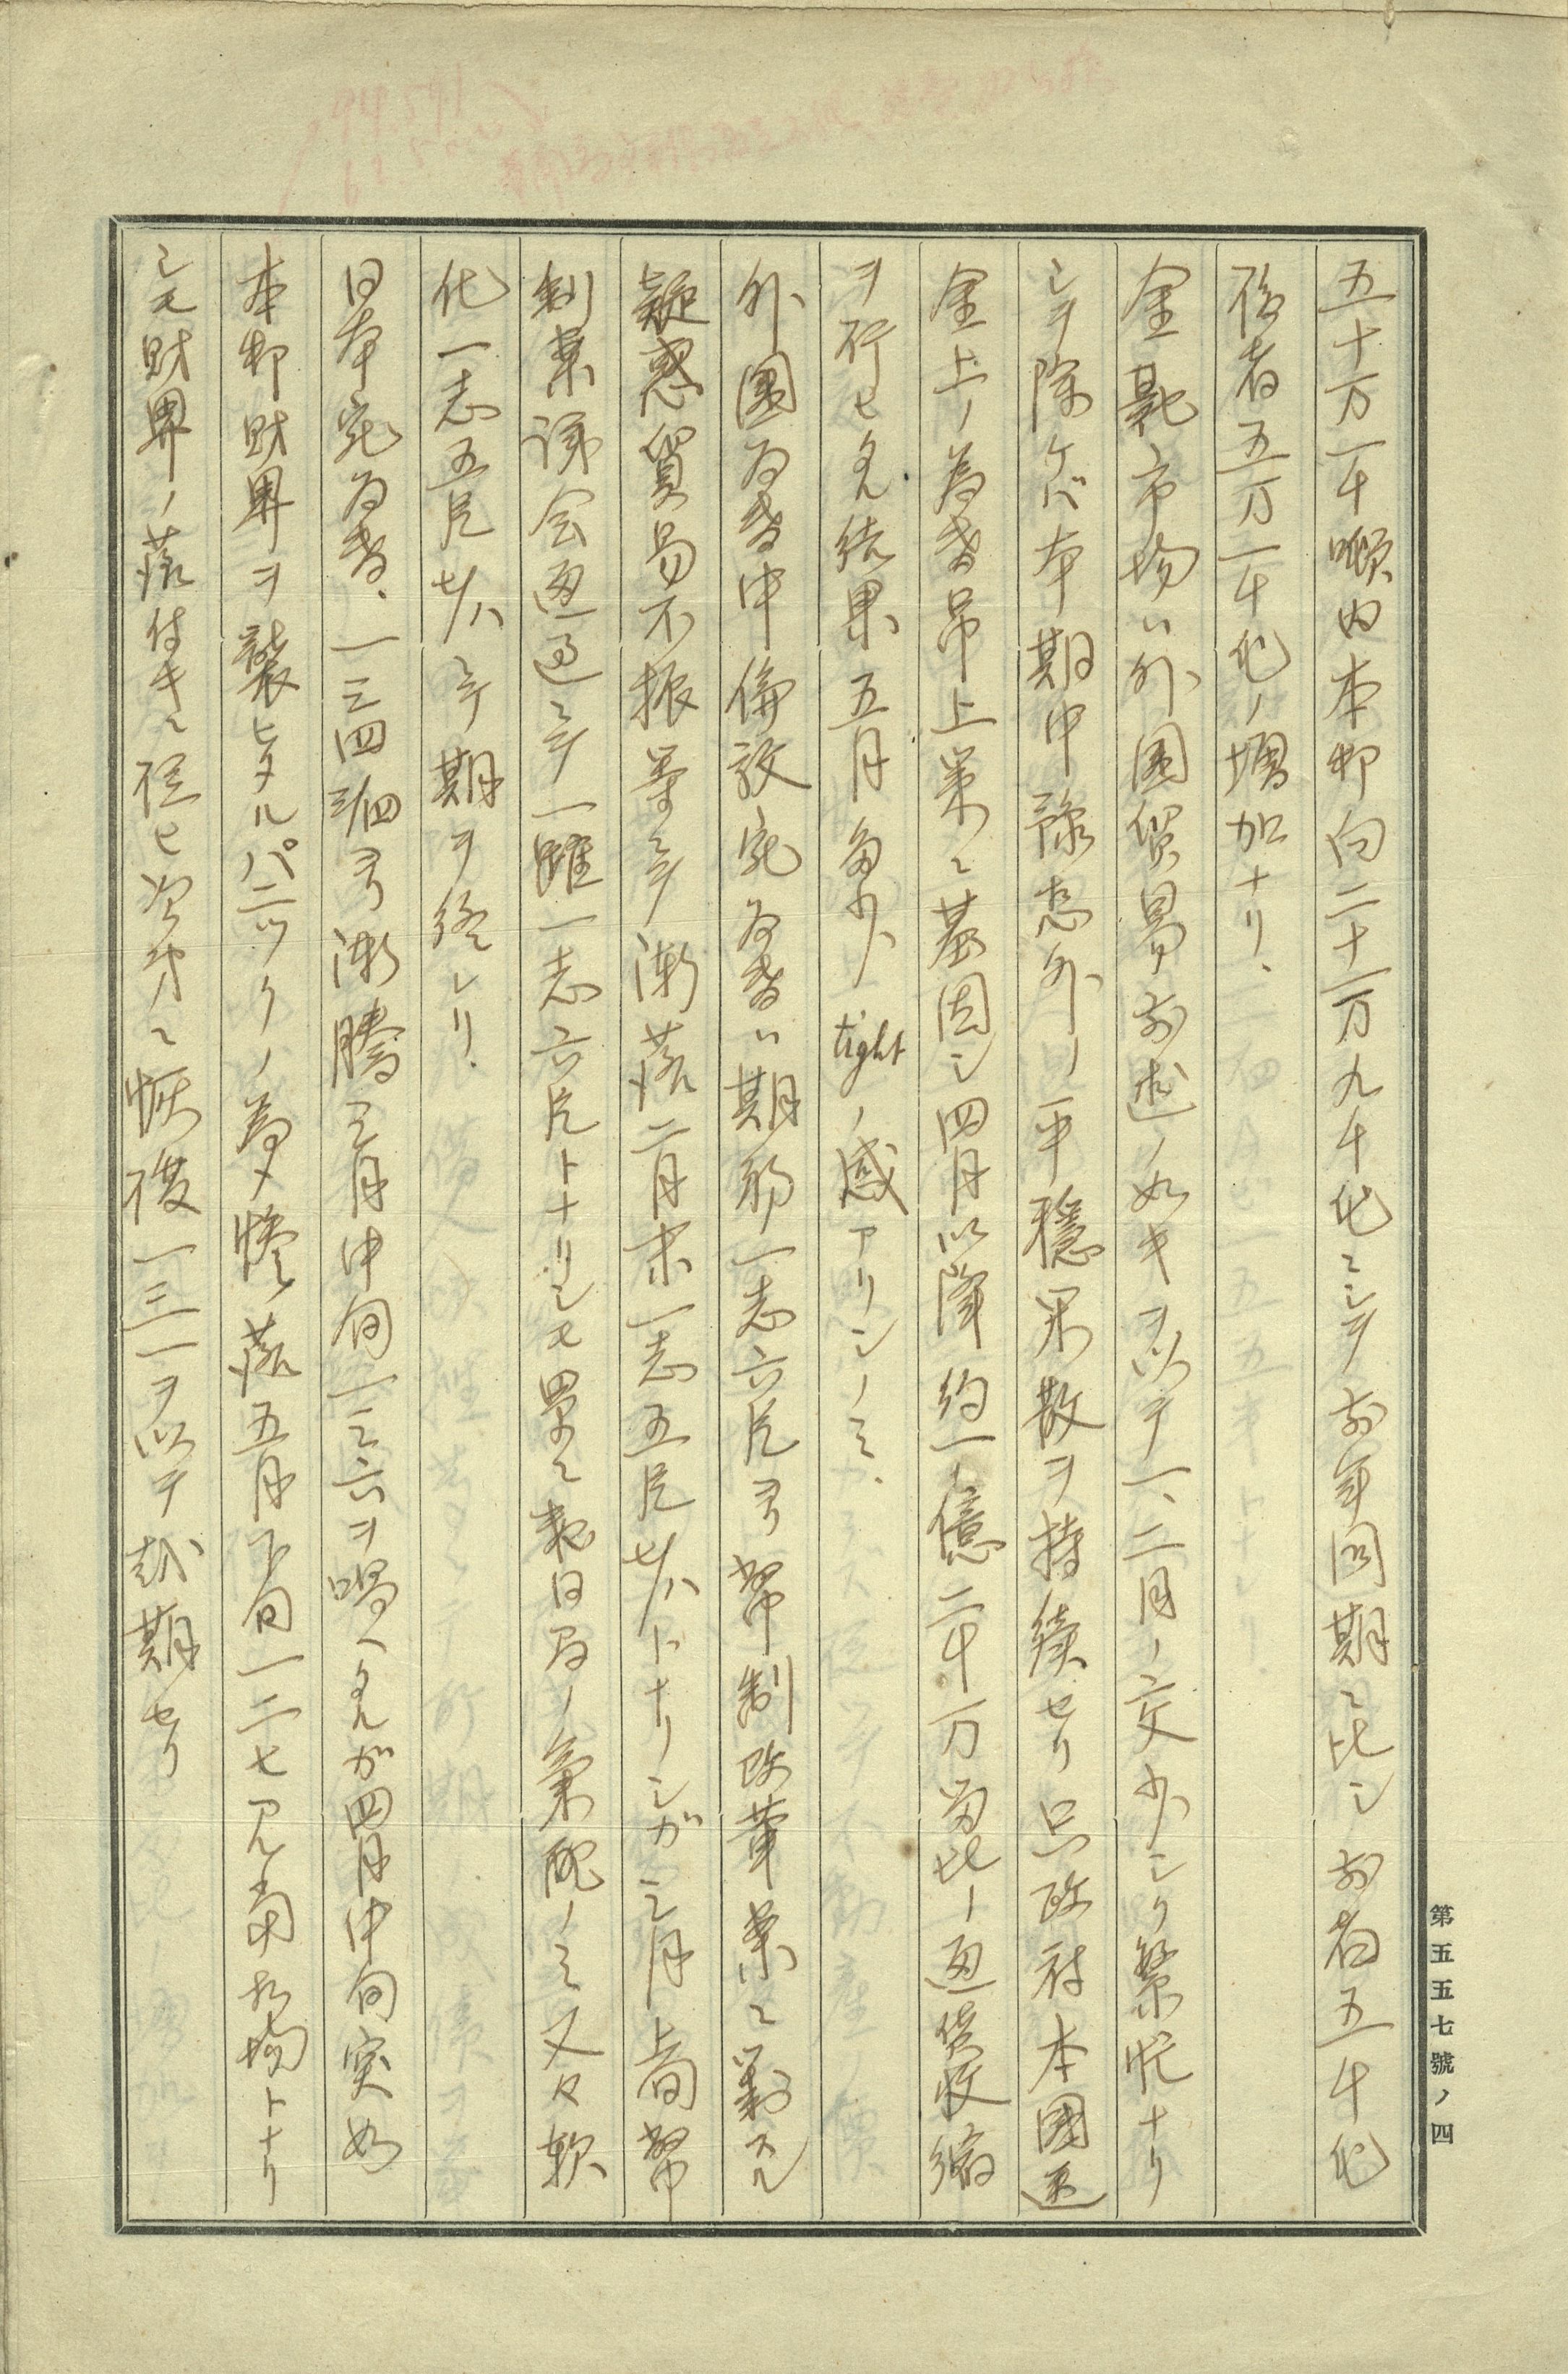 五十万一千噸内本邦向二十一万九千屯ニシテ前年同期ニ比シ前者五千屯
後者五万一千屯ノ増加ナリ、
金融市場ハ外国貿易前述ノ如キヲ以テ一、二月ノ交少シク繁忙ナリ
シヲ除ケバ本期中豫想外ノ平穏閑散ヲ持続セリ只政府本国送
金上ノ為替吊上策ニ基因シ四月以降約一億二千万留比ノ通貨収縮
ヲ行ヒタル結果五月多少tightノ感アリシノミ、
外国為替中倫敦宛為替ハ期初一志六片ヨリ幣制改革案ニ対スル
疑惑貿易不振等ニテ漸落二月末一志五片廿八トナリシガ三月上旬幣
制案議会通過ニテ一躍一志六片トナリシモ買ニ表日及ノ気配ノミ又々軟
化一志五片廿八ニテ期ヲ終レリ、
日本宛為替、一三四3/4ヨリ漸騰三月中旬一三六ヲ唱ヘタルガ四月中旬突如
本邦財界ヲ襲ヒタルパニックノ為メ惨落五月下旬一二七見当相場トナリ
シモ財界ノ落付キニ従ヒ次第ニ恢復一三一ヲ以テ越期セリ
第五五七號ノ四